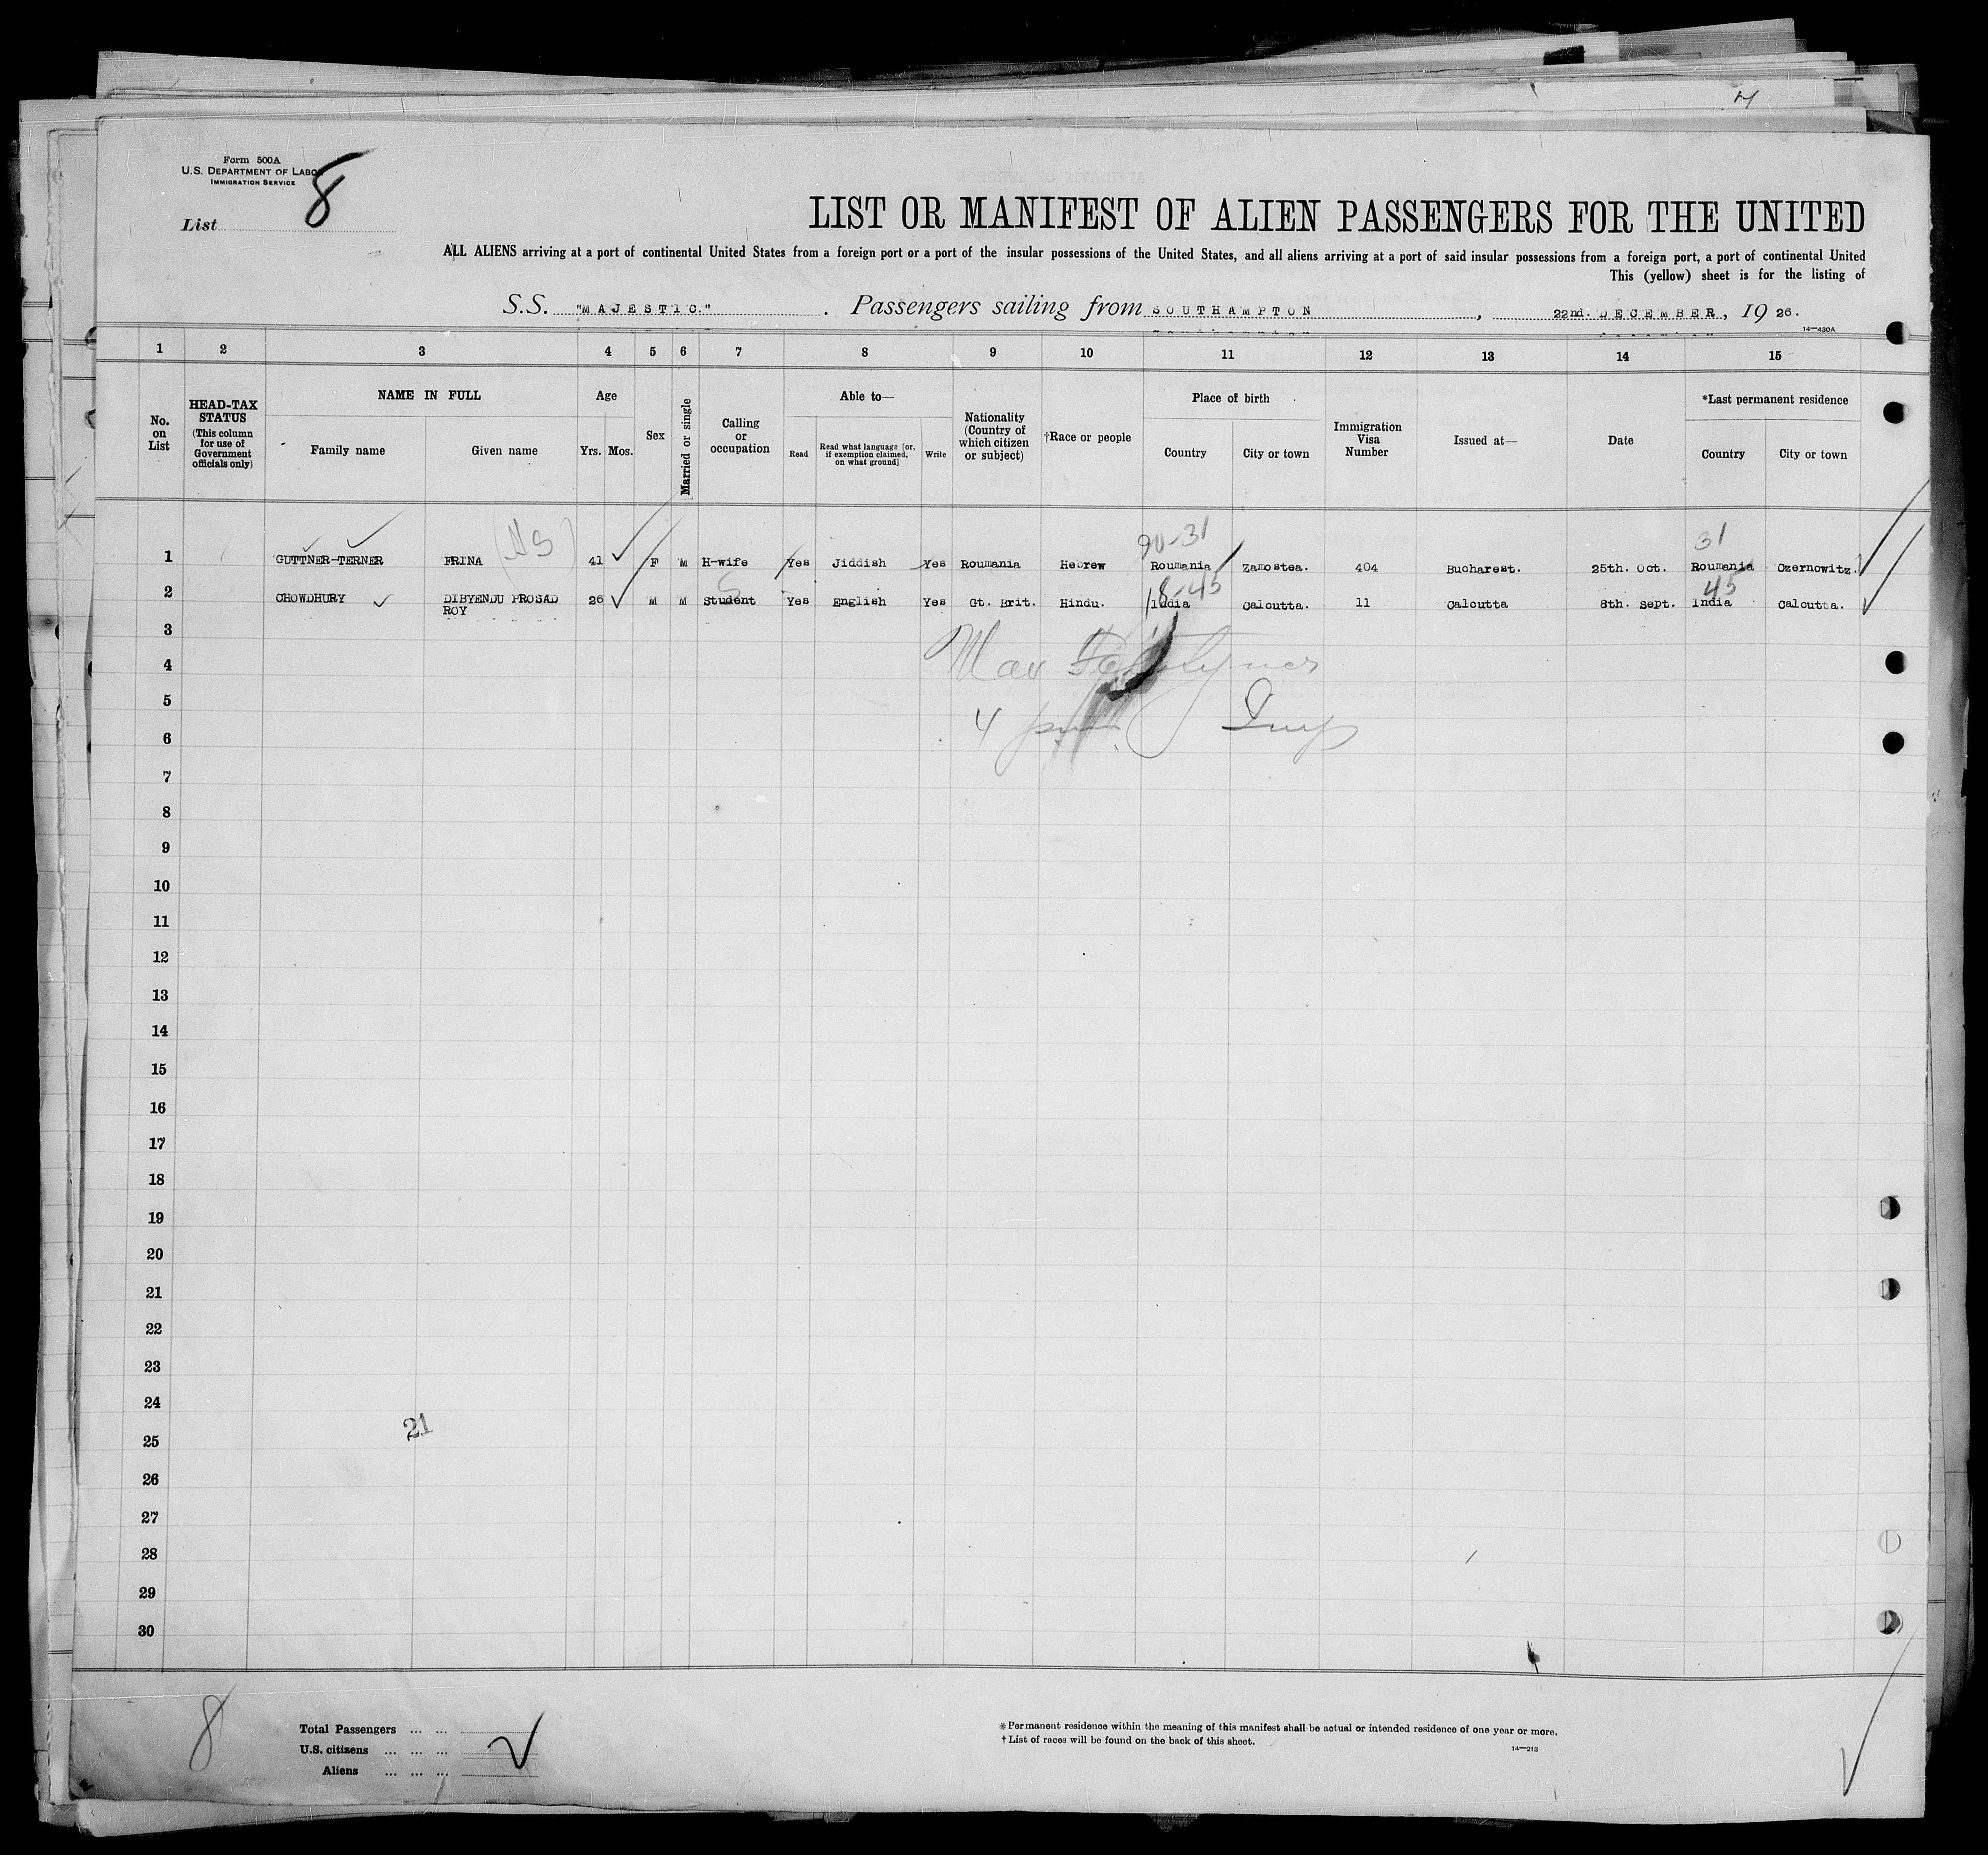 Form 500A
U.S. DEPARTMENT OF LABOR
IMMIGRATION SERVICE
List 8
LIST OR MANIFEST OF ALIEN PASSENGERS FOR THE UNITED
ALL ALIENS arriving at a port of continental United States from a foreign port or a port of the insular possessions of the United States, and all aliens arriving at a port of said insular possessions from a foreign port, a port of continental United
This (yellow) sheet is for the listing of
S.S. "MAJESTIC." Passengers sailing from SOUTHAMPTON, 22nd. DECEMBER, 19 26.
14—430A
1 2 3 4 5 6 7 8 9 10 11 12 13 14 15
No. on List
HEAD-TAX STATUS (This column for use of Government officials only)
NAME IN FULL
Family name Given name
Age
Yrs. Mos.
Sex
Married or single
Calling or occupation
Able to—
Read Read what language [or, if exemption claimed, on what ground] Write
Nationality (Country of which citizen or subject)
†Race or people
Place of birth
Country City or town
Immigration Visa Number
Issued at—
Date
*Last permanent residence
Country City or town
90-31 31
1 GUTTNER-TERNER FRINA 41 F M H-wife Yes Jiddish Yes Roumania Hebrew Roumania Zamostea. 404 Bucharest. 25th. Oct. Roumania Czernowitz.
8-45 45
2 CHOWDHURY DIBYENDU PROSAD ROY 26 M M Student Yes English Yes Gt. Brit. Hindu. India Calcutta. 11 Calcutta 8th. Sept. India Calcutta.
3
4
5
4 pm
6
7
8
9
10
11
12
13
14
15
16
17
18
19
20
21
22
23
24
21
25
26
27
28
29
30
8
Total Passengers ... ...
U.S. citizens ... ... ...
Aliens ... ... ...
*Permanent residence within the meaning of this manifest shall be actual or intended residence of one year or more.
†List of races will be found on the back of this sheet.
14—213